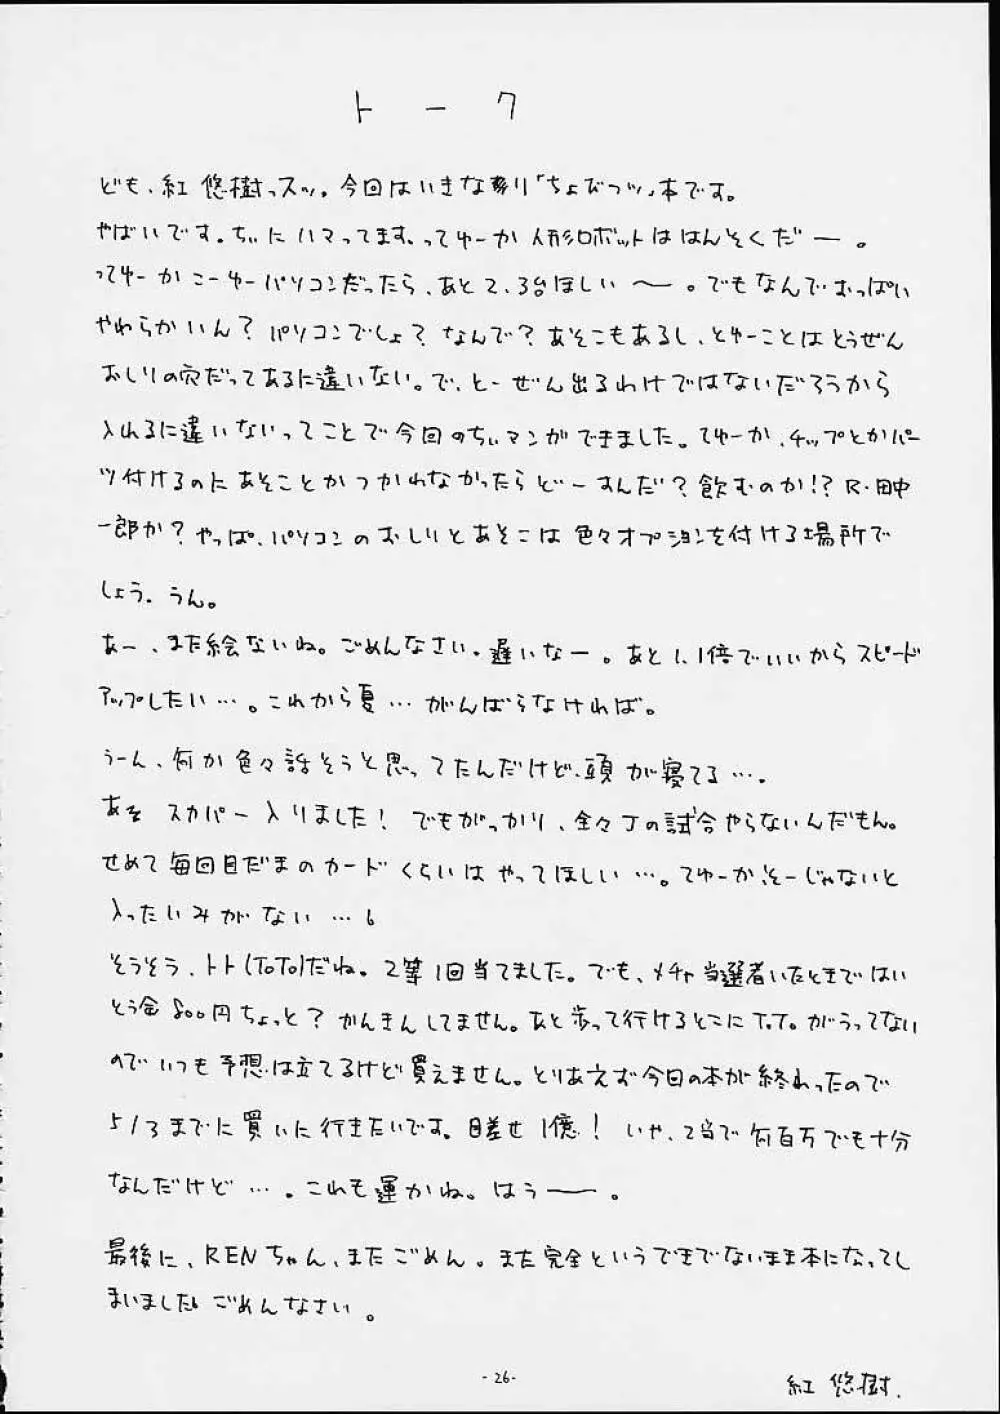 トーク
ども、紅 悠樹っスッ。今回はいきなり「ちょびっツ」本です。
やばいです。ちぃにハマってます、ってゆーか人形ロボットははんそくだー。
ってゆーかこーゆーパソコンだったら、あと2、3台ほしい〜。でもなんでおっぱい
やわらかいん?パソコンでしょ?なんで?あそこもあるし、とゆーことはとうぜん
おしりの穴だってあるに違いない。で、とーぜん出るわけではないだろうから
入れるに違いないってことで今回のちぃマンガができました。てゆーか、チップとかパー
ツ付けるのにあそことかつかわなかったらどーすんだ?飲むのか!?R・田中
一郎か?やっぱ、パソコンのおしりとあそこは色々オプションを付ける場所で
しょう。うん。
あー、また絵ないね。ごめんなさい。遅いなー。あと1.1倍でいいからスピード
アップしたい…。これから夏…がんばらなければ。
うーん、何か色々話そうと思ってたんだけど、頭が寝てる…。
あそ スカパー入りました!でもがっかり、全々Jの試合やらないんだもん。
せめて毎回目だまのカードくらいはやってほしい…。てゆーか、そーじゃないと
入ったいみがない…。
そうそう、トト(ToTo)だね。2等1回当てました。でも、メチャ当選者いたときではい
とう金800円ちょっと?かんきんしてません。あと歩って行けるとこにT.T.がうってない
のでいつも予想は立てるけど買えません。とりあえず今日の本が終わったので
5/3までに買いに行きたいです。目差せ1億!いや、2等で何百万でも十分
なんだけど…。これも運かね。はうー。
最後に、RENちゃん、またごめん。また完全というできでないまま本になってし
まいました。ごめんなさい。
-26-
紅 悠樹.